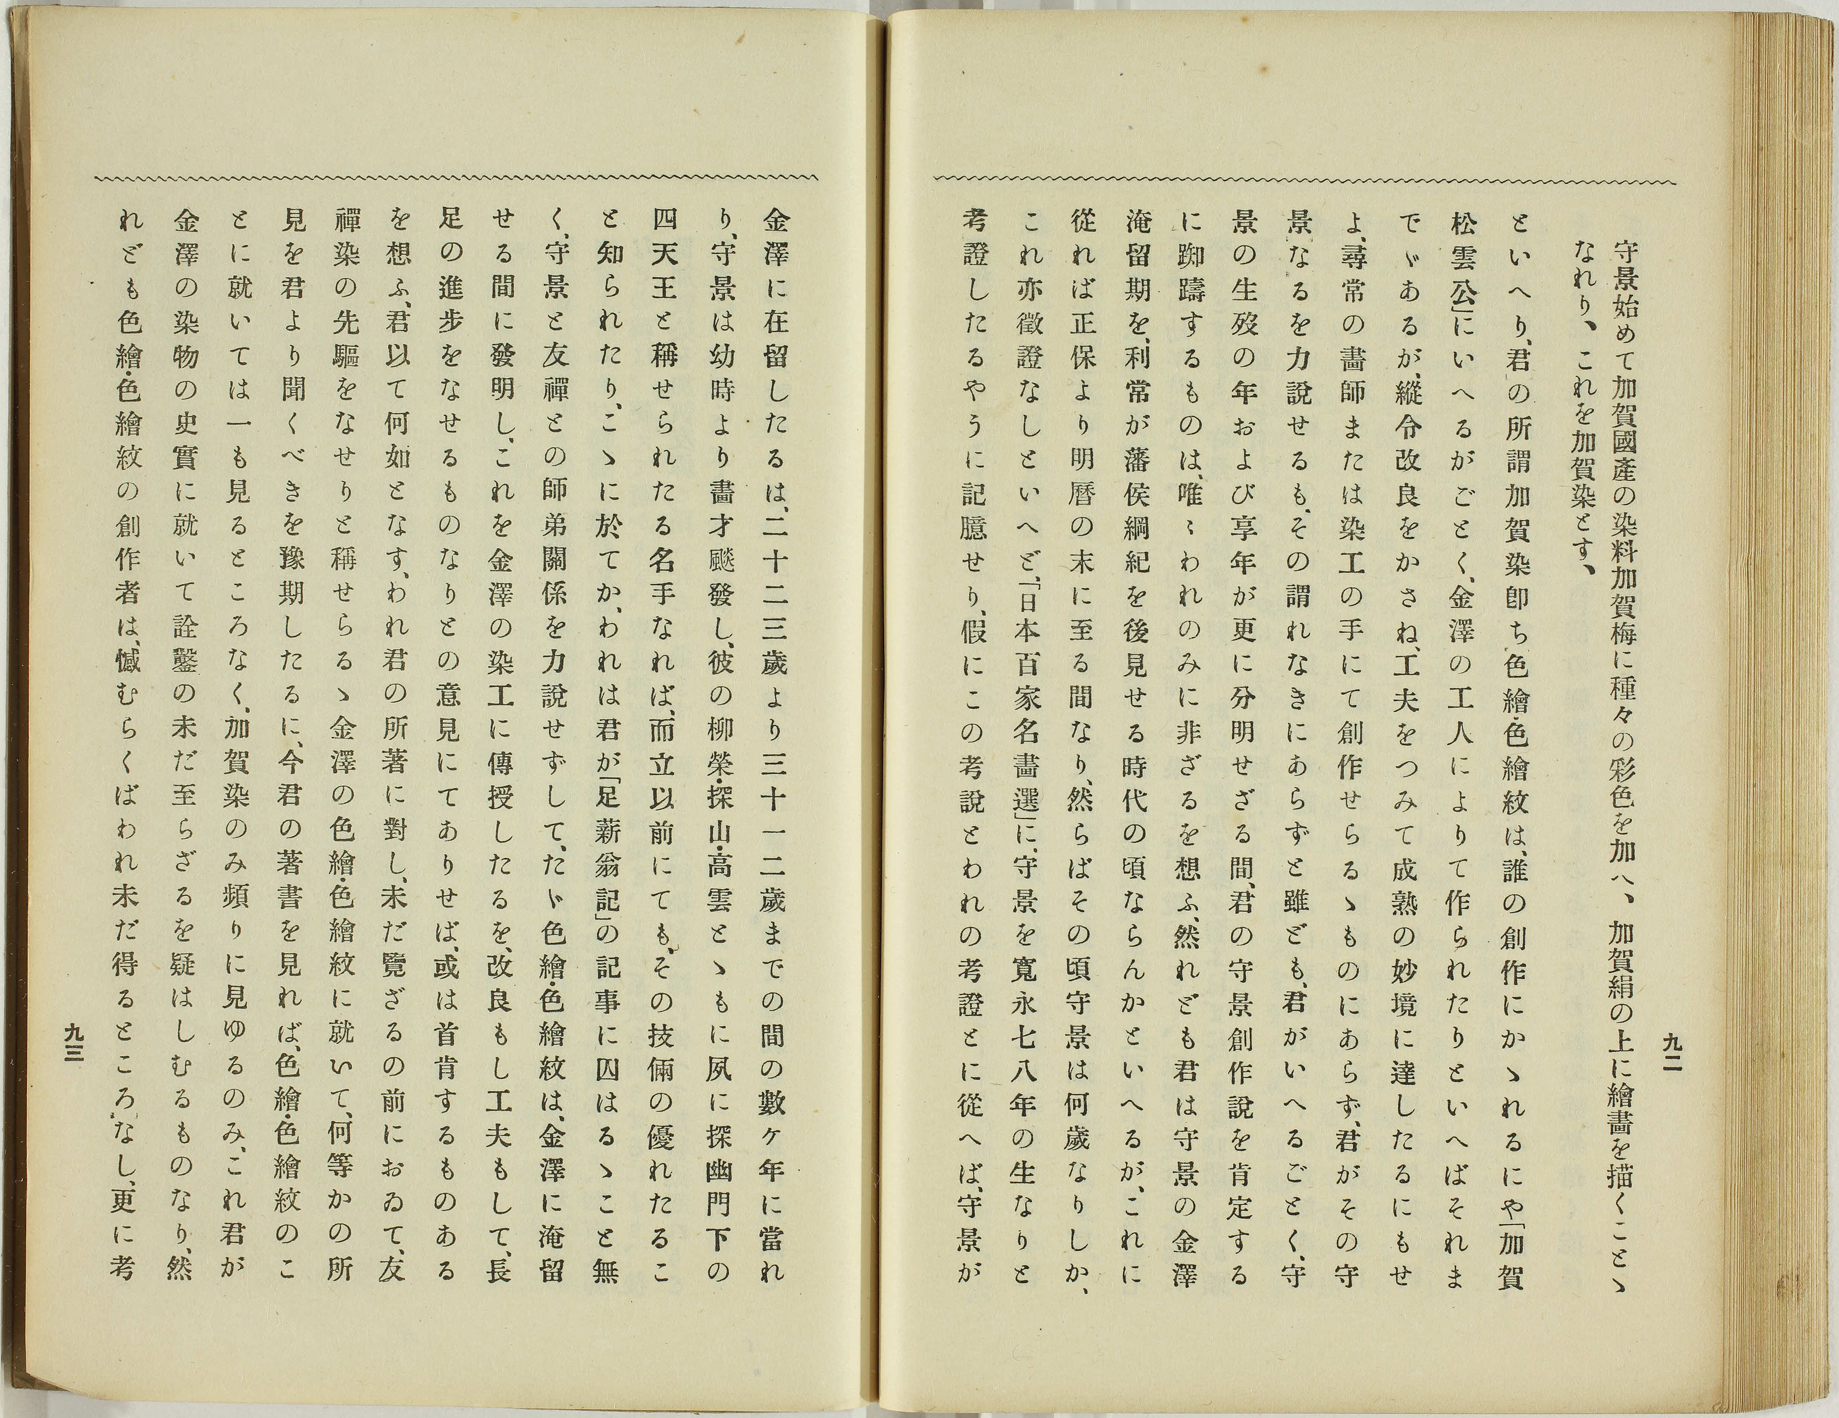 九二
守景始めて加賀國產の染料加賀梅に種々の彩色を加へ、加賀絹の上に繪畫を描くことゝ
なれり、これを加賀染とす、
といへり、君の所謂加賀染卽ち色繪・色繪紋は、誰の創作にかゝれるにや「加賀
松雲公」にいへるがごとく、金澤の工人によりて作られたりといへばそれま
でゞあるが、縱令改良をかさね、工夫をつみて成熟の妙境に達したるにもせ
よ、尋常の畵師または染工の手にて創作せらるゝものにあらず、君がその守
景なるを力說せるも、その謂れなきにあらずと雖ども、君がいへるごとく、守
景の生歿の年および享年が更に分明せざる間、君の守景創作說を肯定する
に踟躊するものは、唯〻われのみに非ざるを想ふ、然れども君は守景の金澤
淹留期を、利常が藩侯綱紀を後見せる時代の頃ならんかといへるが、これに
從れば正保より明曆の末に至る間なり、然らばその頃守景は何歲なりしか、
これ亦徵證なしといへど、「日本百家名畵選」に、守景を寬永七八年の生なりと
考證したるやうに記臆せり、假にこの考說とわれの考證とに從へば、守景が
金澤に在留したるは、二十二三歲より三十一二歲までの間の數ケ年に當れ
り、守景は幼時より畵才飈發し、彼の柳榮・探山・高雲とゝもに夙に探幽門下の
四天王と稱せられたる名手なれば、而立以前にても、その技倆の優れたるこ
と知られたり、こゝに於てか、われは君が「足薪翁記」の記事に囚はるゝこと無
く、守景と友禪との師弟關係を力說せずして、たゞ色繪・色繪紋は、金澤に淹留
せる間に發明し、これを金澤の染工に傳授したるを、改良もし工夫もして、長
足の進步をなせるものなりとの意見にてありせば、或は首肯するものある
を想ふ、君以て何如となす、われ君の所著に對し、未だ覽ざるの前におゐて、友
禪染の先驅をなせりと稱せらるゝ金澤の色繪・色繪紋に就いて、何等かの所
見を君より聞くべきを豫期したるに、今君の著書を見れば、色繪・色繪紋のこ
とに就いては一も見るところなく、加賀染のみ頻りに見ゆるのみ、これ君が
金澤の染物の史實に就いて詮鑿の未だ至らざるを疑はしむるものなり、然
れども色繪・色繪紋の創作者は、憾むらくばわれ未だ得るところなし、更に考
九三